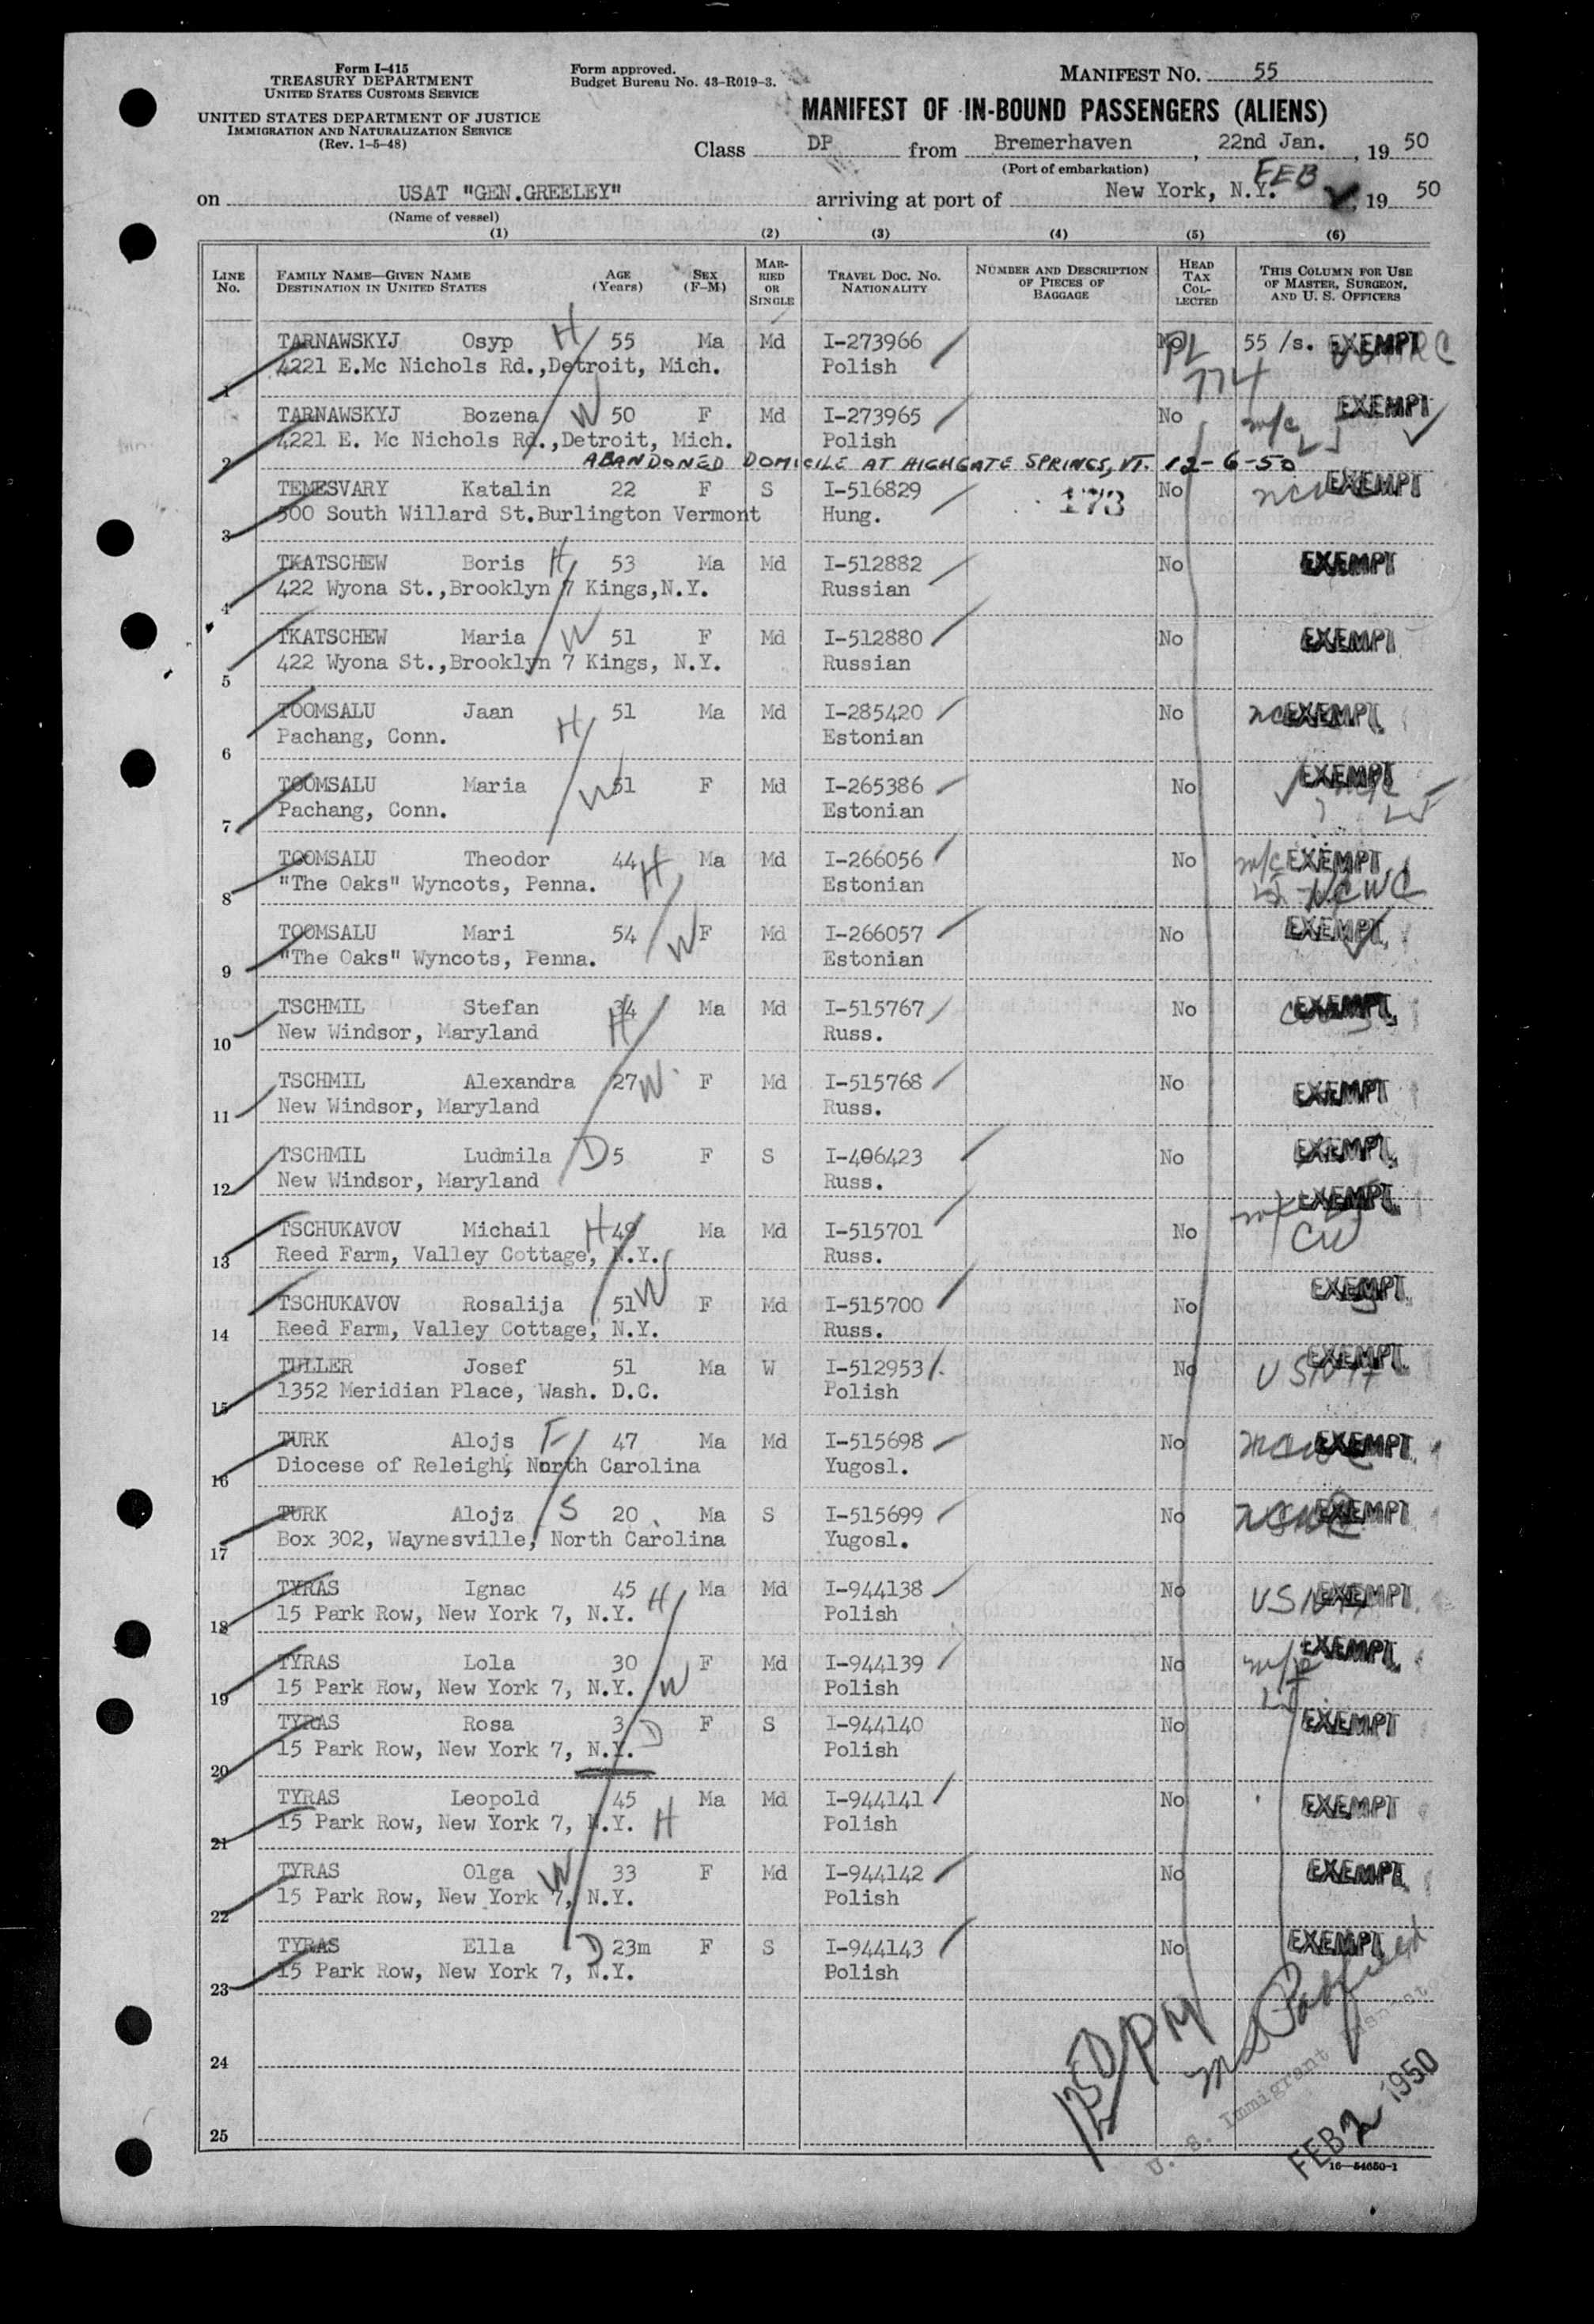 Form I-415
TREASURY DEPARTMENT
UNITED STATES CUSTOMS SERVICE
UNITED STATES DEPARTMENT OF JUSTICE
IMMIGRATION AND NATURALIZATION SERVICE
(Rev. 1-5-48)
Form approved.
Budget Bureau No. 43-R019-3.
MANIFEST NO. 55
MANIFEST OF IN-BOUND PASSENGERS (ALIENS)
Class DP from Bremerhaven, 22nd Jan., 19 50
(Port of embarkation)
FEB
on USAT "GEN.GREELEY" arriving at port of New York, N.Y. , 19 50
(Name of vessel)
(1) (2) (3) (4) (5) (6)
LINE No. FAMILY NAME—GIVEN NAME DESTINATION IN UNITED STATES AGE (Years) SEX (F-M) MARRIED OR SINGLE TRAVEL DOC. NO. NATIONALITY NUMBER AND DESCRIPTION OF PIECES OF BAGGAGE HEAD TAX COLLECTED THIS COLUMN FOR USE OF MASTER, SURGEON, AND U. S. OFFICERS
TARNAWSKYJ Osyp H 55 Ma Md I-273966 No PL 55 /s. EXEMPT
1 4221 E.Mc Nichols Rd.,Detroit, Mich. Polish 774
TARNAWSKYJ Bozena W 50 F Md I-273965 No EXEMPT
2 4221 E. Mc Nichols Rd.,Detroit, Mich. Polish
ABANDONED DOMICILE AT HIGHGATE SPRINGS, VT. 12-6-50
TEMESVARY Katalin 22 F S I-516829 173 No EXEMPT
3 500 South Willard St.Burlington Vermont Hung.
TKATSCHEW Boris H 53 Ma Md I-512882 No EXEMPT
4 422 Wyona St.,Brooklyn 7 Kings,N.Y. Russian
TKATSCHEW Maria W 51 F Md I-512880 No EXEMPT
5 422 Wyona St.,Brooklyn 7 Kings, N.Y. Russian
TOOMSALU Jaan H 51 Ma Md I-285420 No EXEMPT
6 Pachang, Conn. Estonian
TOOMSALU Maria W 51 F Md I-265386 No EXEMPT
7 Pachang, Conn. Estonian
TOOMSALU Theodor 44 H Ma Md I-266056 No EXEMPT
8 "The Oaks" Wyncots, Penna. Estonian NCWC
TOOMSALU Mari 54 W F Md I-266057 No EXEMPT
9 "The Oaks" Wyncots, Penna. Estonian
TSCHMIL Stefan 34 H Ma Md I-515767 No EXEMPT
10 New Windsor, Maryland Russ.
TSCHMIL Alexandra 27 W F Md I-515768 No EXEMPT
11 New Windsor, Maryland Russ.
TSCHMIL Ludmila D 5 F S I-406423 No EXEMPT
12 New Windsor, Maryland Russ.
EXEMPT
TSCHUKAVOV Michail H 49 Ma Md I-515701 No CW
13 Reed Farm, Valley Cottage, N.Y. Russ.
TSCHUKAVOV Rosalija 51 W F Md I-515700 No EXEMPT
14 Reed Farm, Valley Cottage, N.Y. Russ.
TULLER Josef 51 Ma W I-512953 No EXEMPT
15 1352 Meridian Place, Wash. D.C. Polish
TURK Alojs F 47 Ma Md I-515698 No EXEMPT
16 Diocese of Releigh, North Carolina Yugosl.
TURK Alojz S 20 Ma S I-515699 No EXEMPT
17 Box 302, Waynesville, North Carolina Yugosl.
TYRAS Ignac 45 H Ma Md I-944138 No EXEMPT
18 15 Park Row, New York 7, N.Y. Polish
TYRAS Lola 30 F Md I-944139 No EXEMPT
19 15 Park Row, New York 7, N.Y. W Polish
TYRAS Rosa 3 D F S I-944140 No EXEMPT
20 15 Park Row, New York 7, N.Y. Polish
TYRAS Leopold 45 Ma Md I-944141 No EXEMPT
21 15 Park Row, New York 7, N.Y. H Polish
TYRAS Olga W 33 F Md I-944142 No EXEMPT
22 15 Park Row, New York 7, N.Y. Polish
TYRAS Ella D 23m F S I-944143 No EXEMPT
23 15 Park Row, New York 7, N.Y. Polish
24
25
U. S. Immigrant
FEB 2 1950
16—54650-1